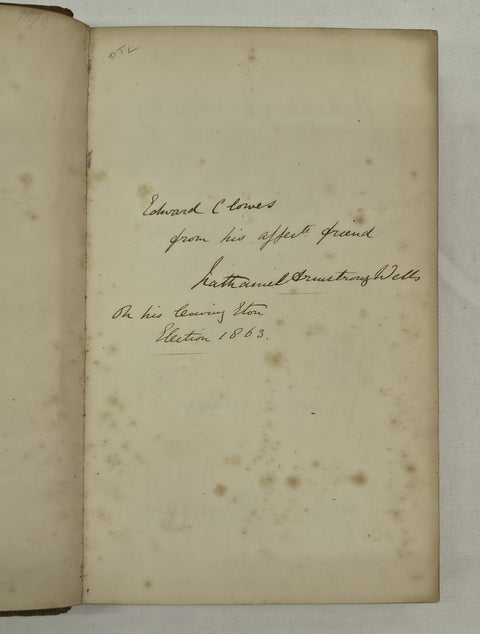 Edward Clowes
from his affecte friend
Nathaniel Armstrong Wells
On his leaving Eton
Election 1863.